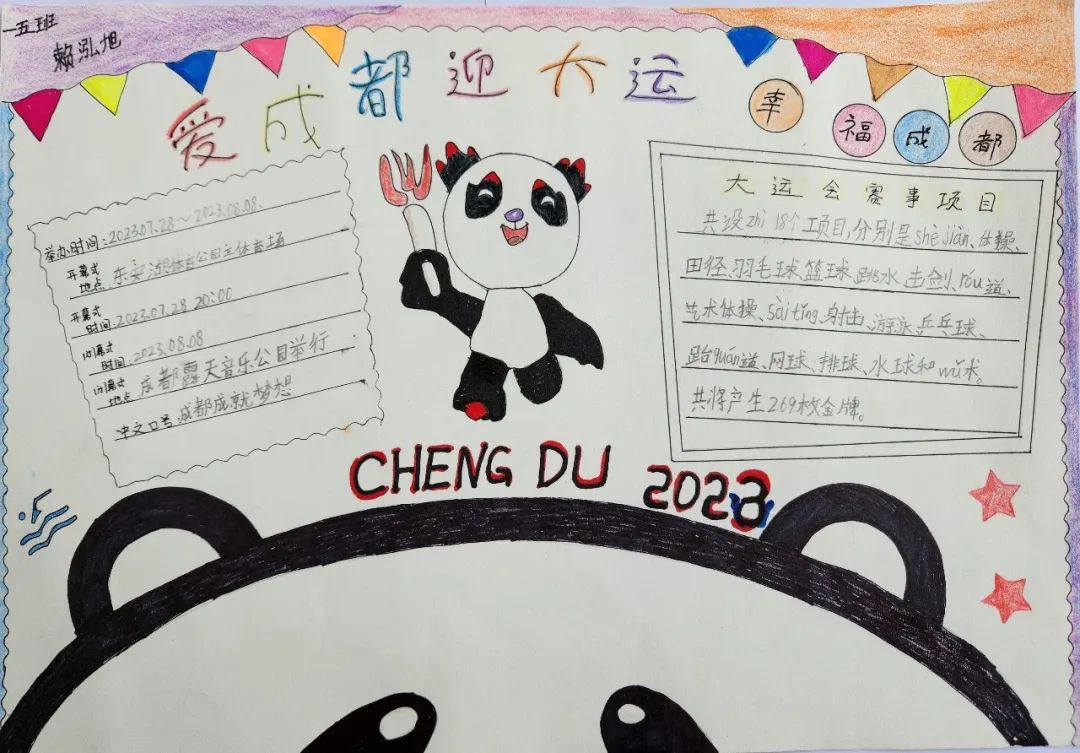 一五班
赖泓旭
爱成都迎大运
幸福成都
举办时间:2023.07.28~2023.08.08
开幕式地点:东安湖体育公园主体育场
开幕式时间:2023.07.28 20:00
闭幕式时间:2023.08.08
闭幕式地点:成都露天音乐公园举行
中文口号:成都成就梦想
大运会赛事项目
共设zhì 18个项目,分别是shè jiàn、体操、
田径、羽毛球、篮球、跳水、击剑、róu道、
艺术体操、sài tǐng、射击、游泳、乒乓球、
跆quán道、网球、排球、水球和wǔ术。
共将产生269枚金牌。
CHENG DU 2023